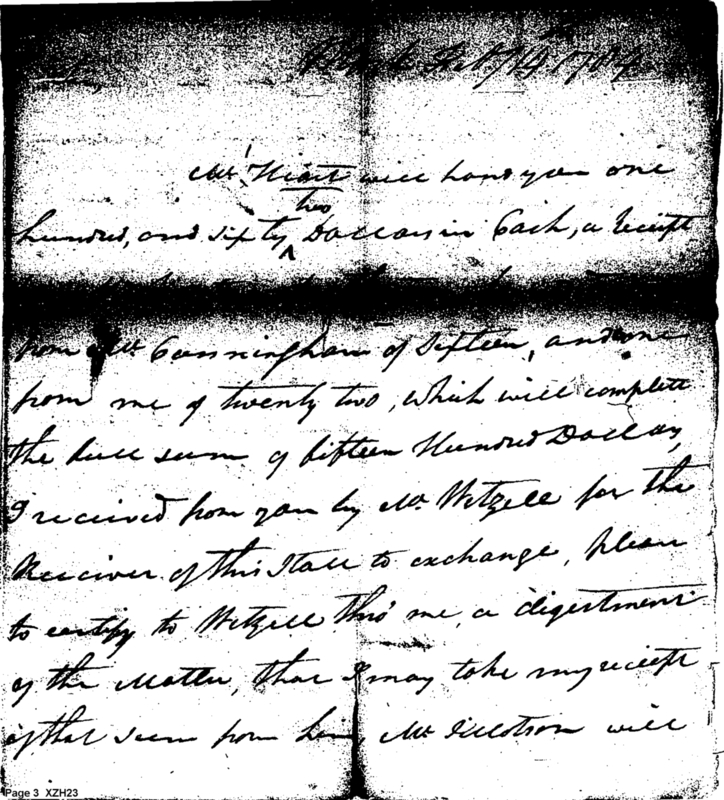 Feby 14 1784
Sir,
Mr. Heart will hand you one
two
hundred, and sixty ^ Dollars in Cash, a receipt
from Mr. Cunningham of Sixteen, and one
from me of twenty two, which will complett
the full sum of fifteen Hundred Dollars,
I received from you by Mr. Wetzell for the
Receiver of this State to exchange, please
to certify to Wetzell thro' me, a digestment
of the Matter, that I may take my receipt
of that sum from him, Mr. Tillotson will
Page 3 XZH23